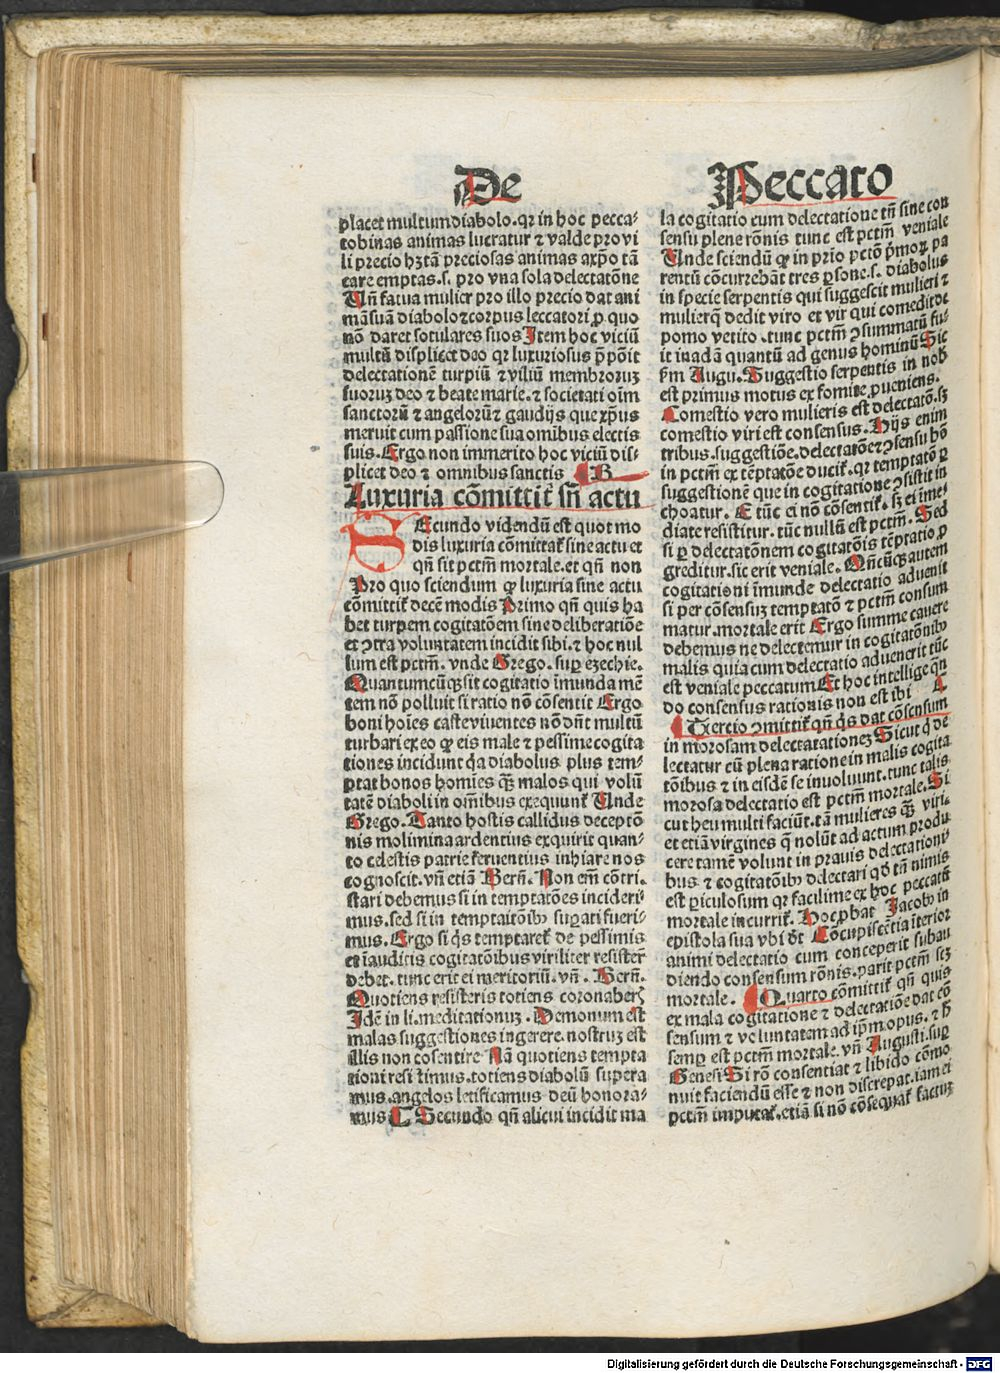 De
placet multum diabolo. qꝛ in hoc pecca-
to binas animas lucratur ⁊ valde pro vi
li precio hꝫ tā preciosas animas a xp̄o tā
care emptas. s. pro vna sola delectatōne
Vn̄ fatua mulier pro illo precio dat ani
mā suā diabolo ⁊ corpus leccatori, ꝓ quo
nō daret sotulares suos Item hoc viciū
multū displicet deo qꝛ luxuriosus p̄pōit
delectationē turpiū ⁊ viliū membroruꝫ
suoruꝫ deo ⁊ beate marie. ⁊ societati oīm
sanctorū ⁊ angelorū ⁊ gaudijs que xp̄us
meruit cum passione sua omībus electis
suis. Ergo non immerito hoc viciū dis-
plicet deo ⁊ omnibus sanctis B
Luxuria cōmittit̄ sn̄ actu
SEcundo videndū est quot mo
dis luxuria cōmittat̄ sine actu et
qn̄ sit pctm̄ mortale. et qn̄ non
Pro quo sciendum ꝙ luxuria sine actu
cōmittit̄ decē modis Primo qn̄ quis ha
bet turpem cogitatōem sine deliberatiōe
et ꝯtra voluntatem incidit sibi. ⁊ hoc nul
lum est pctm̄. vnde Grego. suꝑ ezechie.
Quantumcūqꝫ sit cogitatio īmunda mē
tem nō polluit si ratio nō cōsentit Ergo
boni hoīes caste viuentes nō dn̄t multū
turbari ex eo ꝙ eis male ⁊ pessime cogita
tiones incidunt q̄a diabolus plus tem-
ptat bonos homīes qꝫ̄ malos qui volū
tatē diaboli in om̄ibus exequunt̄ Vnde
Grego. Tanto hostis callidus deceptō
nis molimina ardentius exquirit quan-
to celestis patrie feruentius inhiare nos
cognoscit. vn̄ etiā Bern̄. Non em̄ cōtri-
stari debemus si in temptatōes incideri
mus. sed si in temptatōibꝫ suꝑati fueri-
mus. Ergo si q̄s temptaret̄ de pessimis
et īauditis cogitatōibus viriliter resister̄
debet. tunc erit ei meritoriū. vn̄. Bern̄.
Quotiens resisteris totiens coronaber̄
Idē in li. meditationuꝫ. Demonum est
malas suggestiones ingerere. nostruꝫ est
illis non cosentire Nā quotiens tempta
tioni resistimus. totiens diabolū supera
mus. angelos letificamus deū honora-
mus C Secundo qn̄ alicui incidit ma
Peccato
la cogitatio cum delectatione tn̄ sine con
sensu plene rōnis tunc est pctm̄ veniale
Vnde sciendū ꝙ in prīo pctō p̄moꝝ pa
rentū cōcurrebāt tres ꝑsone. s. diabolus
in specie serpentis qui suggescit mulieri ⁊
mulier q̄ dedit viro et vir qui comedit de
pomo vetito. tunc pctm̄ ꝯsummatū fu-
it in adā quantū ad genus hominū Sic
fm̄ Augu. Suggestio serpentis in nob̄
est primus motus ex fomite ꝓueniens.
Comestio vero mulieris est delectatō. sꝫ
comestio viri est consensus. Hijs enim
tribus. suggestiōe. delectatōe ⁊ ꝯsensu hō
in pctm̄ ex tēptatōe ducit̄. qꝛ temptatō ꝑ
suggestionē que in cogitatione ꝯsistit in
choatur. Et tūc ei nō cōsentit̄. sꝫ ei īme-
diate resistitur. tūc nullū est pctm̄. Sed
si ꝑ delectatōnem cogitatōis tēptatio ꝓ
greditur. sic erit veniale. Qn̄cūqꝫ autem
cogitationi īmunde delectatio aduenit
si per cōsensuꝫ temptatō ⁊ pctm̄ consum
matur. mortale erit Ergo summe cauere
debemus ne delectemur in cogitatōnibꝫ
malis quia cum delectatio aduenerit tūc
est veniale peccatum Et hoc intellige qn̄
do consensus rationis non est ibi
Tercio ꝯmittit̄ qn̄ q̄s dat cōsensum
in morosam delectatationeꝫ Sicut q̄ de
lectatur cū plena ratione in malis cogita
tōibus ⁊ in eisdē se inuoluunt. tunc talis
morosa delectatio est pctm̄ mortale. Si
cut heu multi faciūt. tā mulieres qꝫ̄ viri-
et etiā virgines q̄ nolūt ad actum produ
cere tamē volunt in prauis delectationi-
bus ⁊ cogitatōibꝫ delectari qd̄ tn̄ nimis
est ꝑiculosum qꝛ facilime ex hoc peccatū
mortale incurrit̄. Hoc ꝓbat Jacobꝫ in
epistola sua vbi dt̄ Cōcupiscētia īterior
animi delectatio cum conceperit subau
diendo consensum rōnis. parit pctm̄ scꝫ
mortale. Quarto cōmittit̄ qn̄ quis
ex mala cogitatione ⁊ delectatiōe dat cō
sensum ⁊ voluntatem ad ip̄m opus. ⁊ h̄
semꝑ est pctm̄ mortale. vn̄ Augusti. suꝑ
Genesi Si rō consentiat ⁊ libido cōmo
nuit faciendū esse ⁊ non discrepat. iam ei
pctm̄ imputat̄. etiā si nō cōsequat̄ factuꝫ
Digitalisierung gefördert durch die Deutsche Forschungsgemeinschaft - DFG